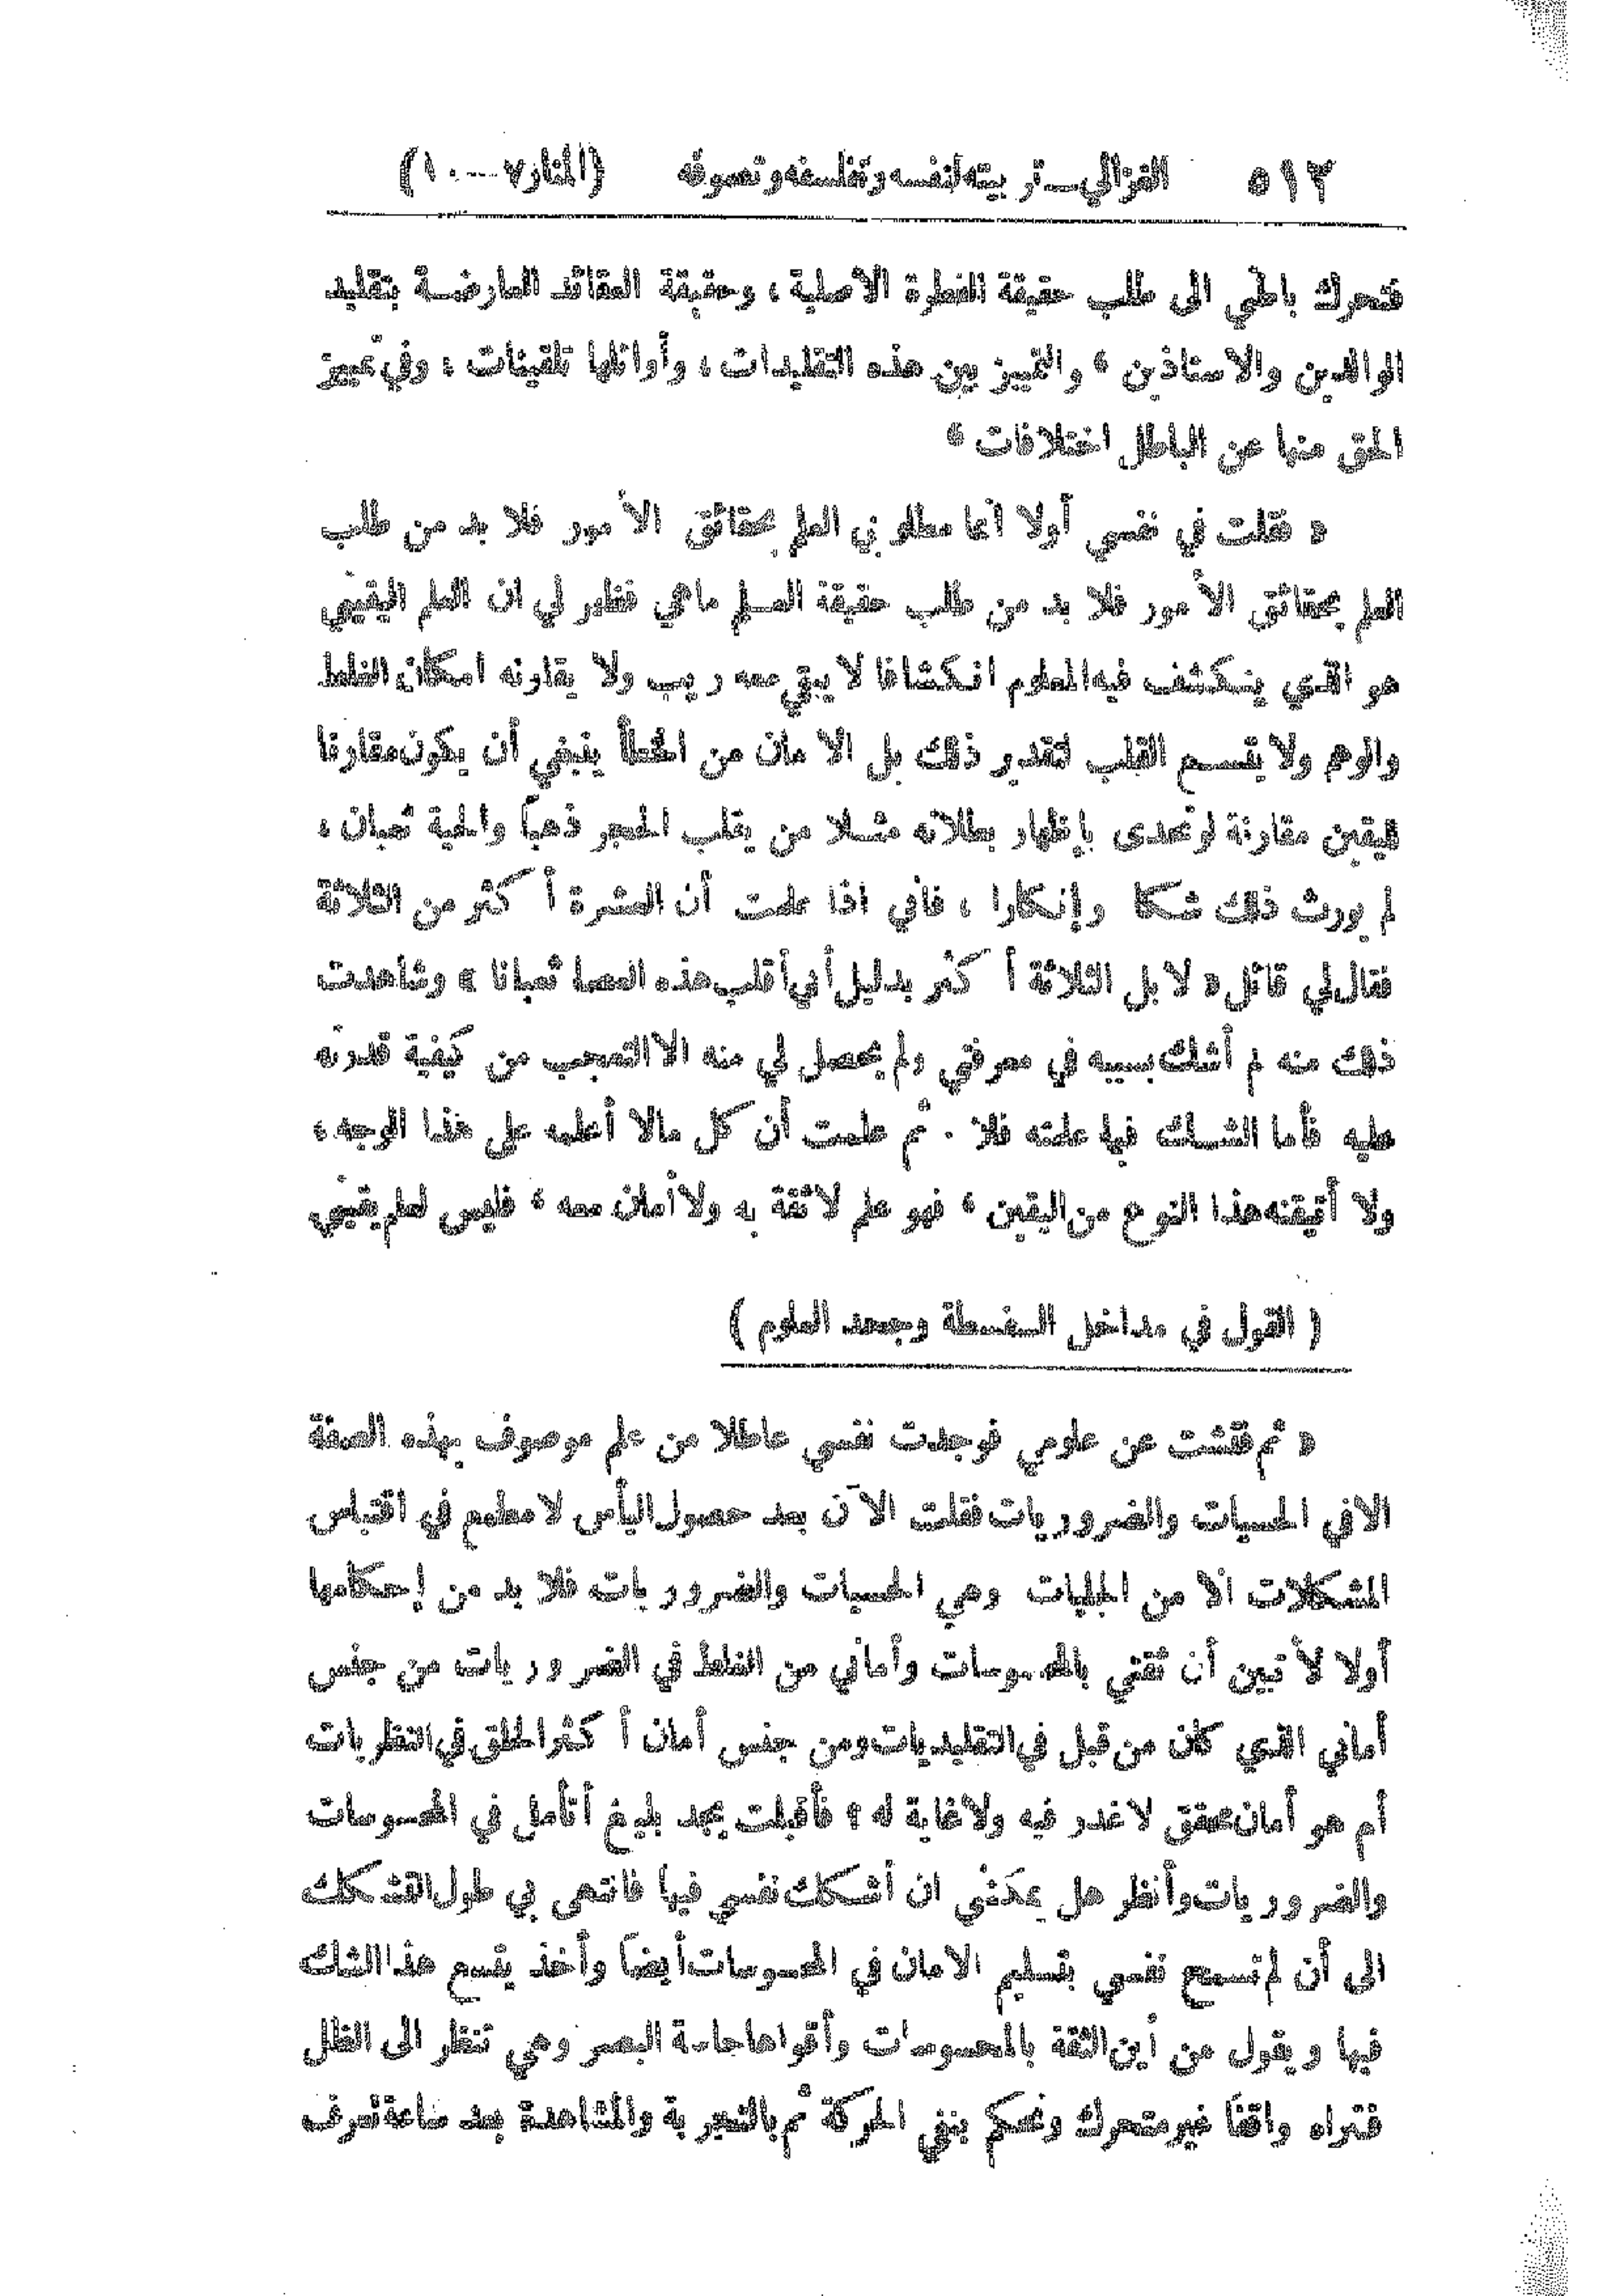 ٥١٢ الغزالي — تربيته لنفسه وتفلسفه وتصوفه (المنار٧ — ١٠)
فتحرك باطني الى طلب حقيقة الفطرة الأصلية ، وحقيقة العقائد العارضة بتقليد
الوالدين والاستاذين ، والتمييز بين هذه التقليدات ، وأوائلها تلقينات ، وفي تمييز
الحق منها عن الباطل اختلافات ،
« فقلت في نفسي أولا انما مطلوبي العلم بحقائق الأمور فلا بد من طلب
العلم بحقائق الأمور فلا بد من طلب حقيقة العلم ماهي فظهر لي ان العلم اليقيني
هو الذي ينكشف فيه المعلوم انكشافا لا يبقى معه ريب ولا يقارنه امكان الغلط
والوهم ولا يتسع القلب لتقدير ذلك بل الامان من الخطأ ينبغي أن يكون مقارنا
لليقين مقارنة لو تحدى بإظهار بطلانه مثلا من يقلب الحجر ذهباً والحية ثعبان ،
لم يورث ذلك شكا وإنكارا ، فاني اذا علمت أن العشرة أكثر من الثلاثة
فقال لي قائل « لا بل الثلاثة أكثر بدليل أني أقلب هذه العصا ثعبانا » وشاهدت
ذلك منه لم أشك بسببه في معرفتي ولم يحصل لي منه الا التعجب من كيفية قدرته
عليه فأما الشك فيما علمته فلا . ثم علمت أن كل مالا أعلمه على هذا الوجه ،
ولا أتيقنه هذا النوع من اليقين ، فهو علم لا ثقة به ولا أمان معه ، فليس لعلم يقيني
( القول في مداخل السفسطة وجحد العلوم )
« ثم فتشت عن علومي فوجدت نفسي عاطلا من علم موصوف بهذه الصفة
الا في الحسيات والضروريات فقلت الآن بعد حصول اليأس لا مطمع في اقتباس
المشكلات الا من الجليات وهي الحسيات والضروريات فلا بد من إحكامها
أولا لأتبين أن ثقتي بالمحسوسات وأماني من الغلط في الضروريات من جنس
أماني الذي كان من قبل في التقليديات ومن جنس أمان أكثر الخلق في النظريات
أم هو أمان محقق لا غدر فيه ولا غاية له ؟ فأقبلت بجد بليغ أتأمل في المحسوسات
والضروريات وأنظر هل يمكنني ان أشكك نفسي فيها فانتهى بي طول التشكك
الى أن لم تسمح نفسي بتسليم الامان في المحسوسات أيضاً وأخذ يتسع هذا الشك
فيها ويقول من أين الثقة بالمحسوسات وأقواها حاسة البصر وهي تنظر الى الظل
فتراه واقفاً غير متحرك وتحكم بنفي الحركة ثم بالتجربة والمشاهدة بعد ساعة تعرف